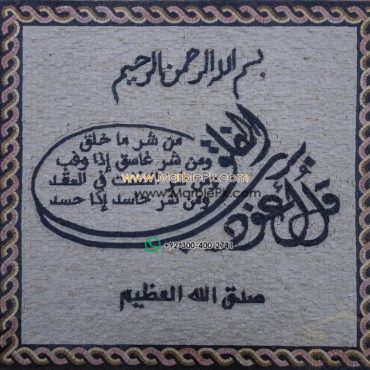 بسم الله الرحمن الرحيم
قل أعوذ برب الفلق
من شر ما خلق
ومن شر غاسق إذا وقب
في العقد
ومن شر حاسد إذا حسد
www.MarblePk.com
+92-300-400-2741
صدق الله العظيم